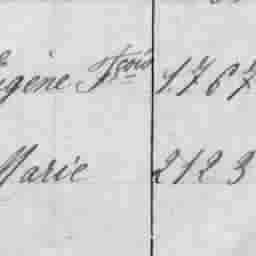 Eugène Fçois 1767
Marie 2123